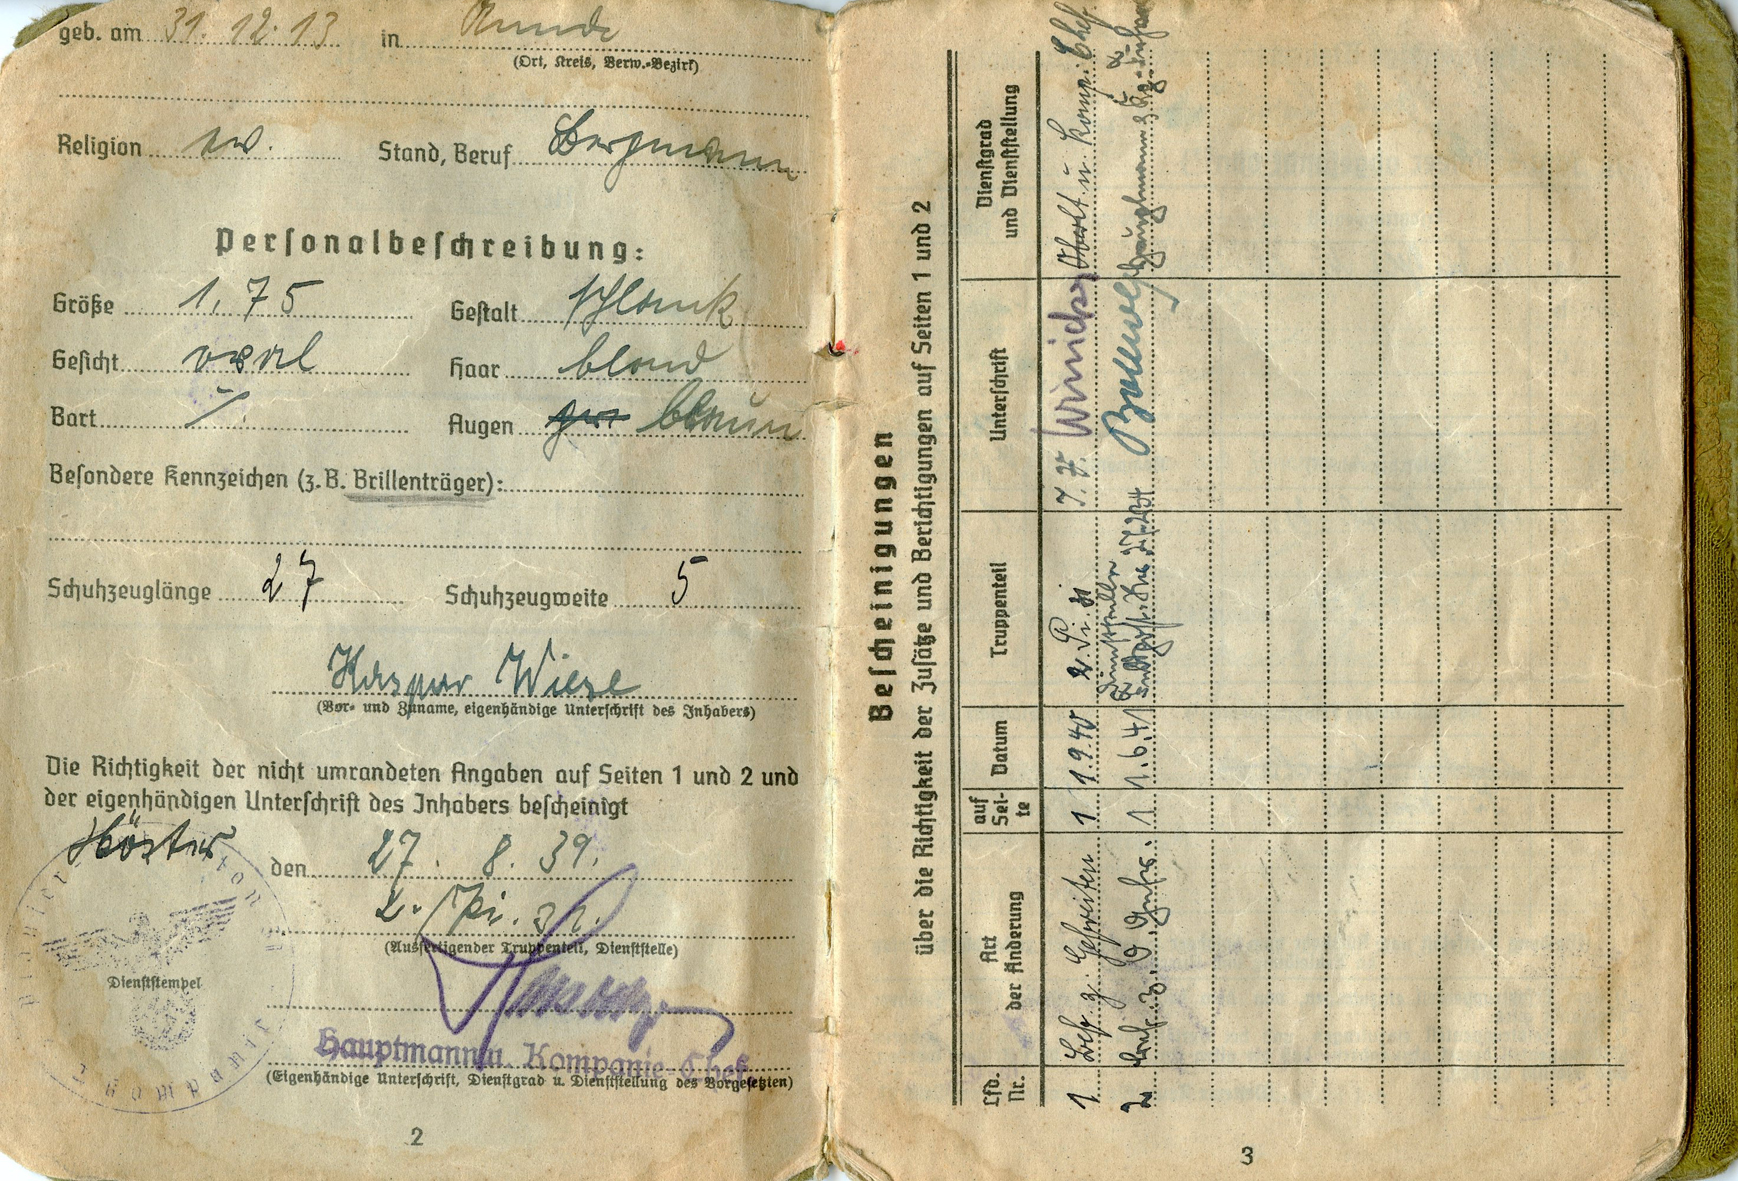 geb. am 31. 12. 13 in
(Ort, Kreis, Verw.-Bezirk)
Religion ev. Stand, Beruf Bergmann
Personalbeschreibung:
Größe 1,75 Gestalt schlank
Gesicht oval Haar blond
Bart ./. Augen blau
Besondere Kennzeichen (z.B. Brillenträger):
Schuhzeuglänge 27 Schuhzeugweite 5
Kaspar Wiese
(Vor- und Zuname, eigenhändige Unterschrift des Inhabers)
Die Richtigkeit der nicht umrandeten Angaben auf Seiten 1 und 2 und
der eigenhändigen Unterschrift des Inhabers bescheinigt
Höxter den 27. 8. 39.
2. Pi. 31.
(Ausfertigender Truppenteil, Dienststelle)
Dienststempel
Hauptmann u. Kompanie-Chef
(Eigenhändige Unterschrift, Dienstgrad u. Dienststellung des Vorgesetzten)
2
Bescheinigungen
über die Richtigkeit der Zusätze und Berichtigungen auf Seiten 1 und 2
Lfd. Nr. Art der Änderung auf Seite Datum Truppenteil Unterschrift Dienstgrad und Dienststellung
1 Bef. z. Gefreiten 1 1.9.40 2. Pi. 31 Oberlt. u. Komp. Chef
2 1 1.6.41
3